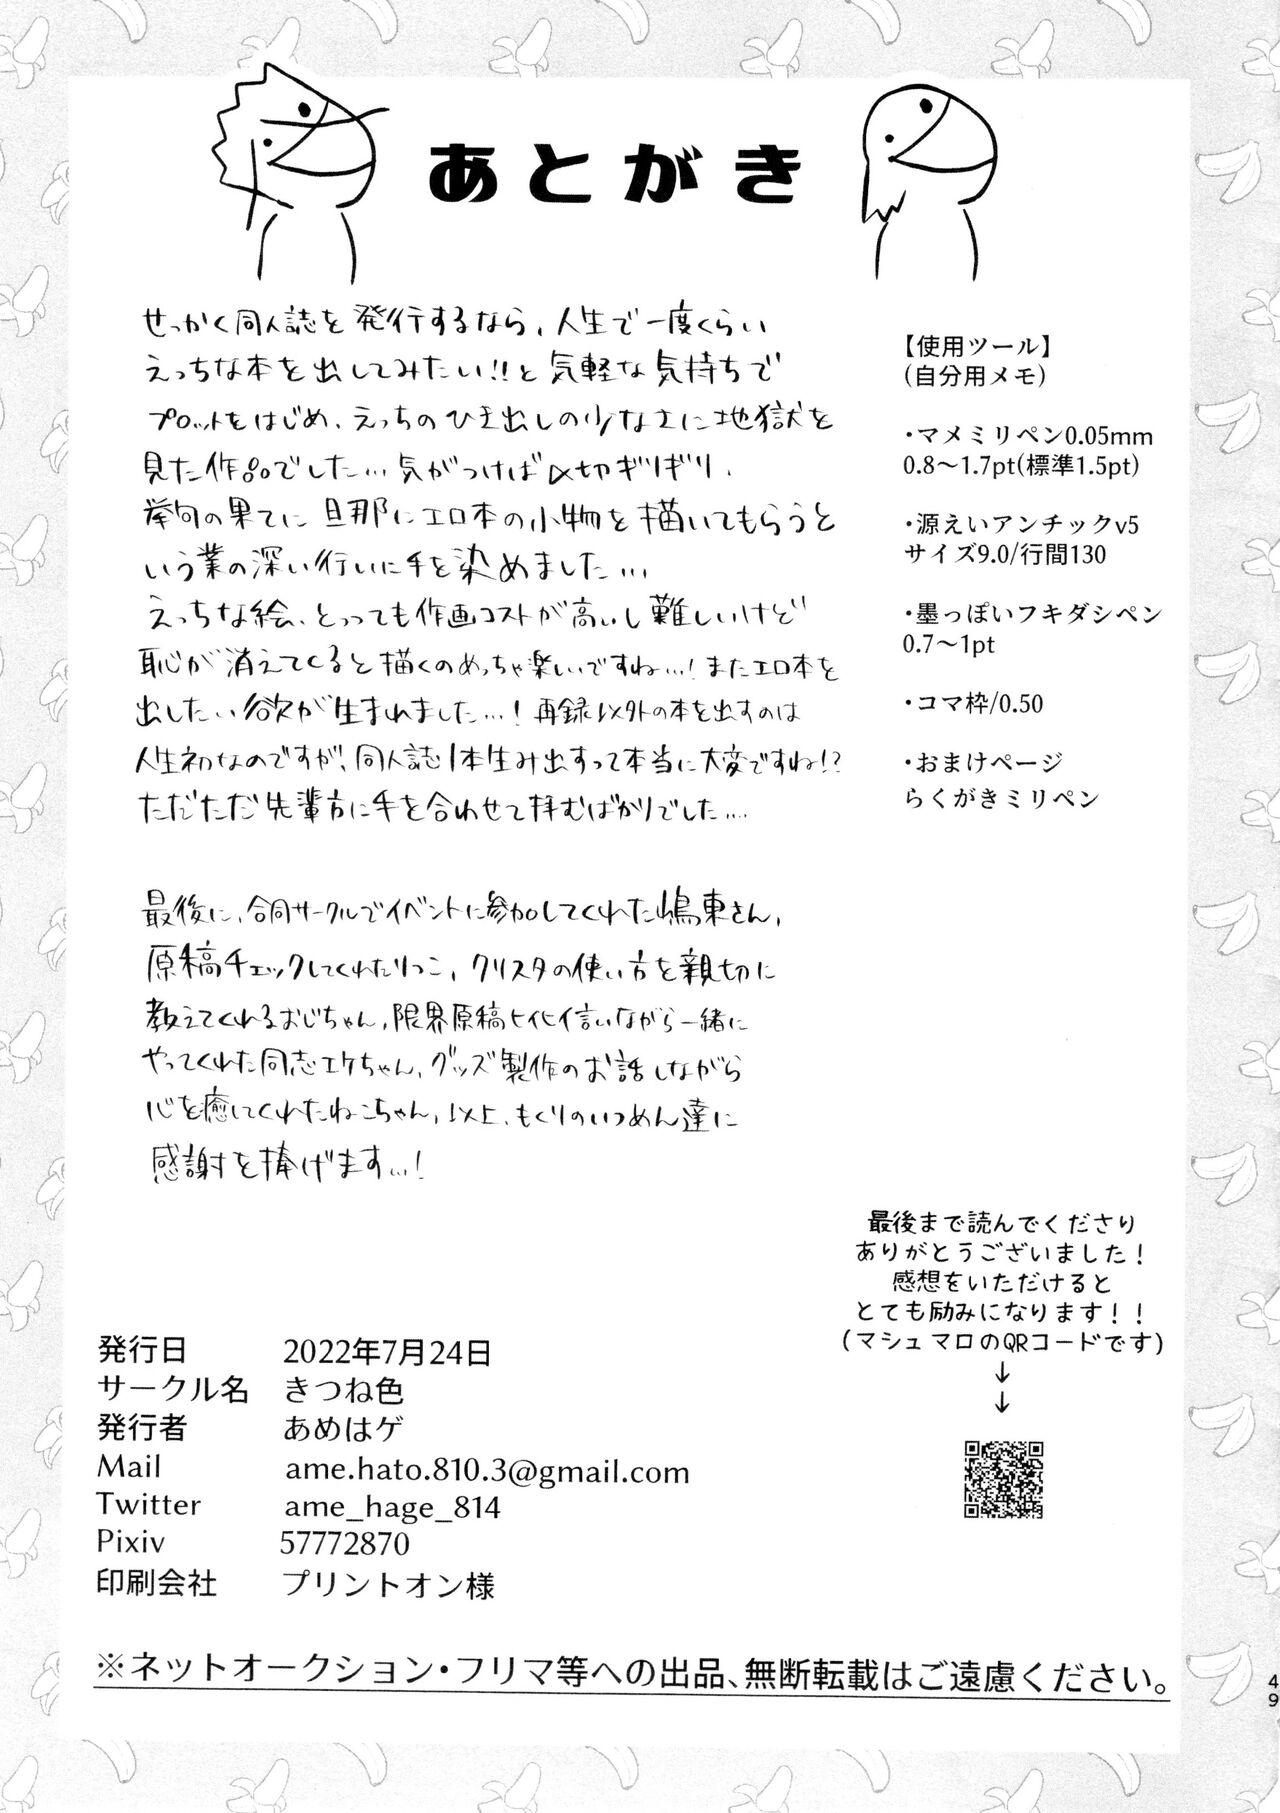 あとがき
せっかく同人誌を発行するなら、人生で一度くらい
えっちな本を出してみたい!!と気軽な気持ちで
プロットをはじめ、えっちのひき出しの少なさに地獄を
見た作品でした…気がつけば〆切ギリギリ、
挙句の果てに旦那にエロ本の小物を描いてもらうと
いう業の深い行いに手を染めました…
えっちな絵、とっっても作画コストが高いし難しいけど
恥が消えてくると描くのめっちゃ楽しいですね…!またエロ本を
出したい欲が生まれました…!再録以外の本を出すのは
人生初なのですが、同人誌1本生み出すって本当に大変ですね!?
ただただ先輩方に手を合わせて拝むばかりでした…
最後に、合同サークルでイベントに参加してくれた嶋東さん、
原稿チェックしてくれたりつこ、クリスタの使い方を親切に
教えてくれるおじちゃん、限界原稿ヒイヒイ言いながら一緒に
やってくれた同志エケちゃん、グッズ製作のお話しながら
心を癒してくれたねこちゃん、以上、もくりのいつめん達に
感謝を捧げます…!
【使用ツール】
(自分用メモ)
・マメミリペン0.05mm
0.8～1.7pt(標準1.5pt)
・源えいアンチックv5
サイズ9.0/行間130
・墨っぽいフキダシペン
0.7～1pt
・コマ枠/0.50
・おまけページ
らくがきミリペン
最後まで読んでくださり
ありがとうございました!
感想をいただけると
とても励みになります!!
(マシュマロのQRコードです)
↓
↓
発行日 2022年7月24日
サークル名 きつね色
発行者 あめはゲ
Mail ame.hato.810.3@gmail.com
Twitter ame_hage_814
Pixiv 57772870
印刷会社 プリントオン様
※ネットオークション・フリマ等への出品、無断転載はご遠慮ください。
49